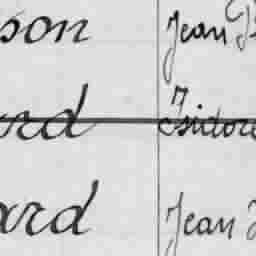 son Jean
ard Isidore
ard Jean